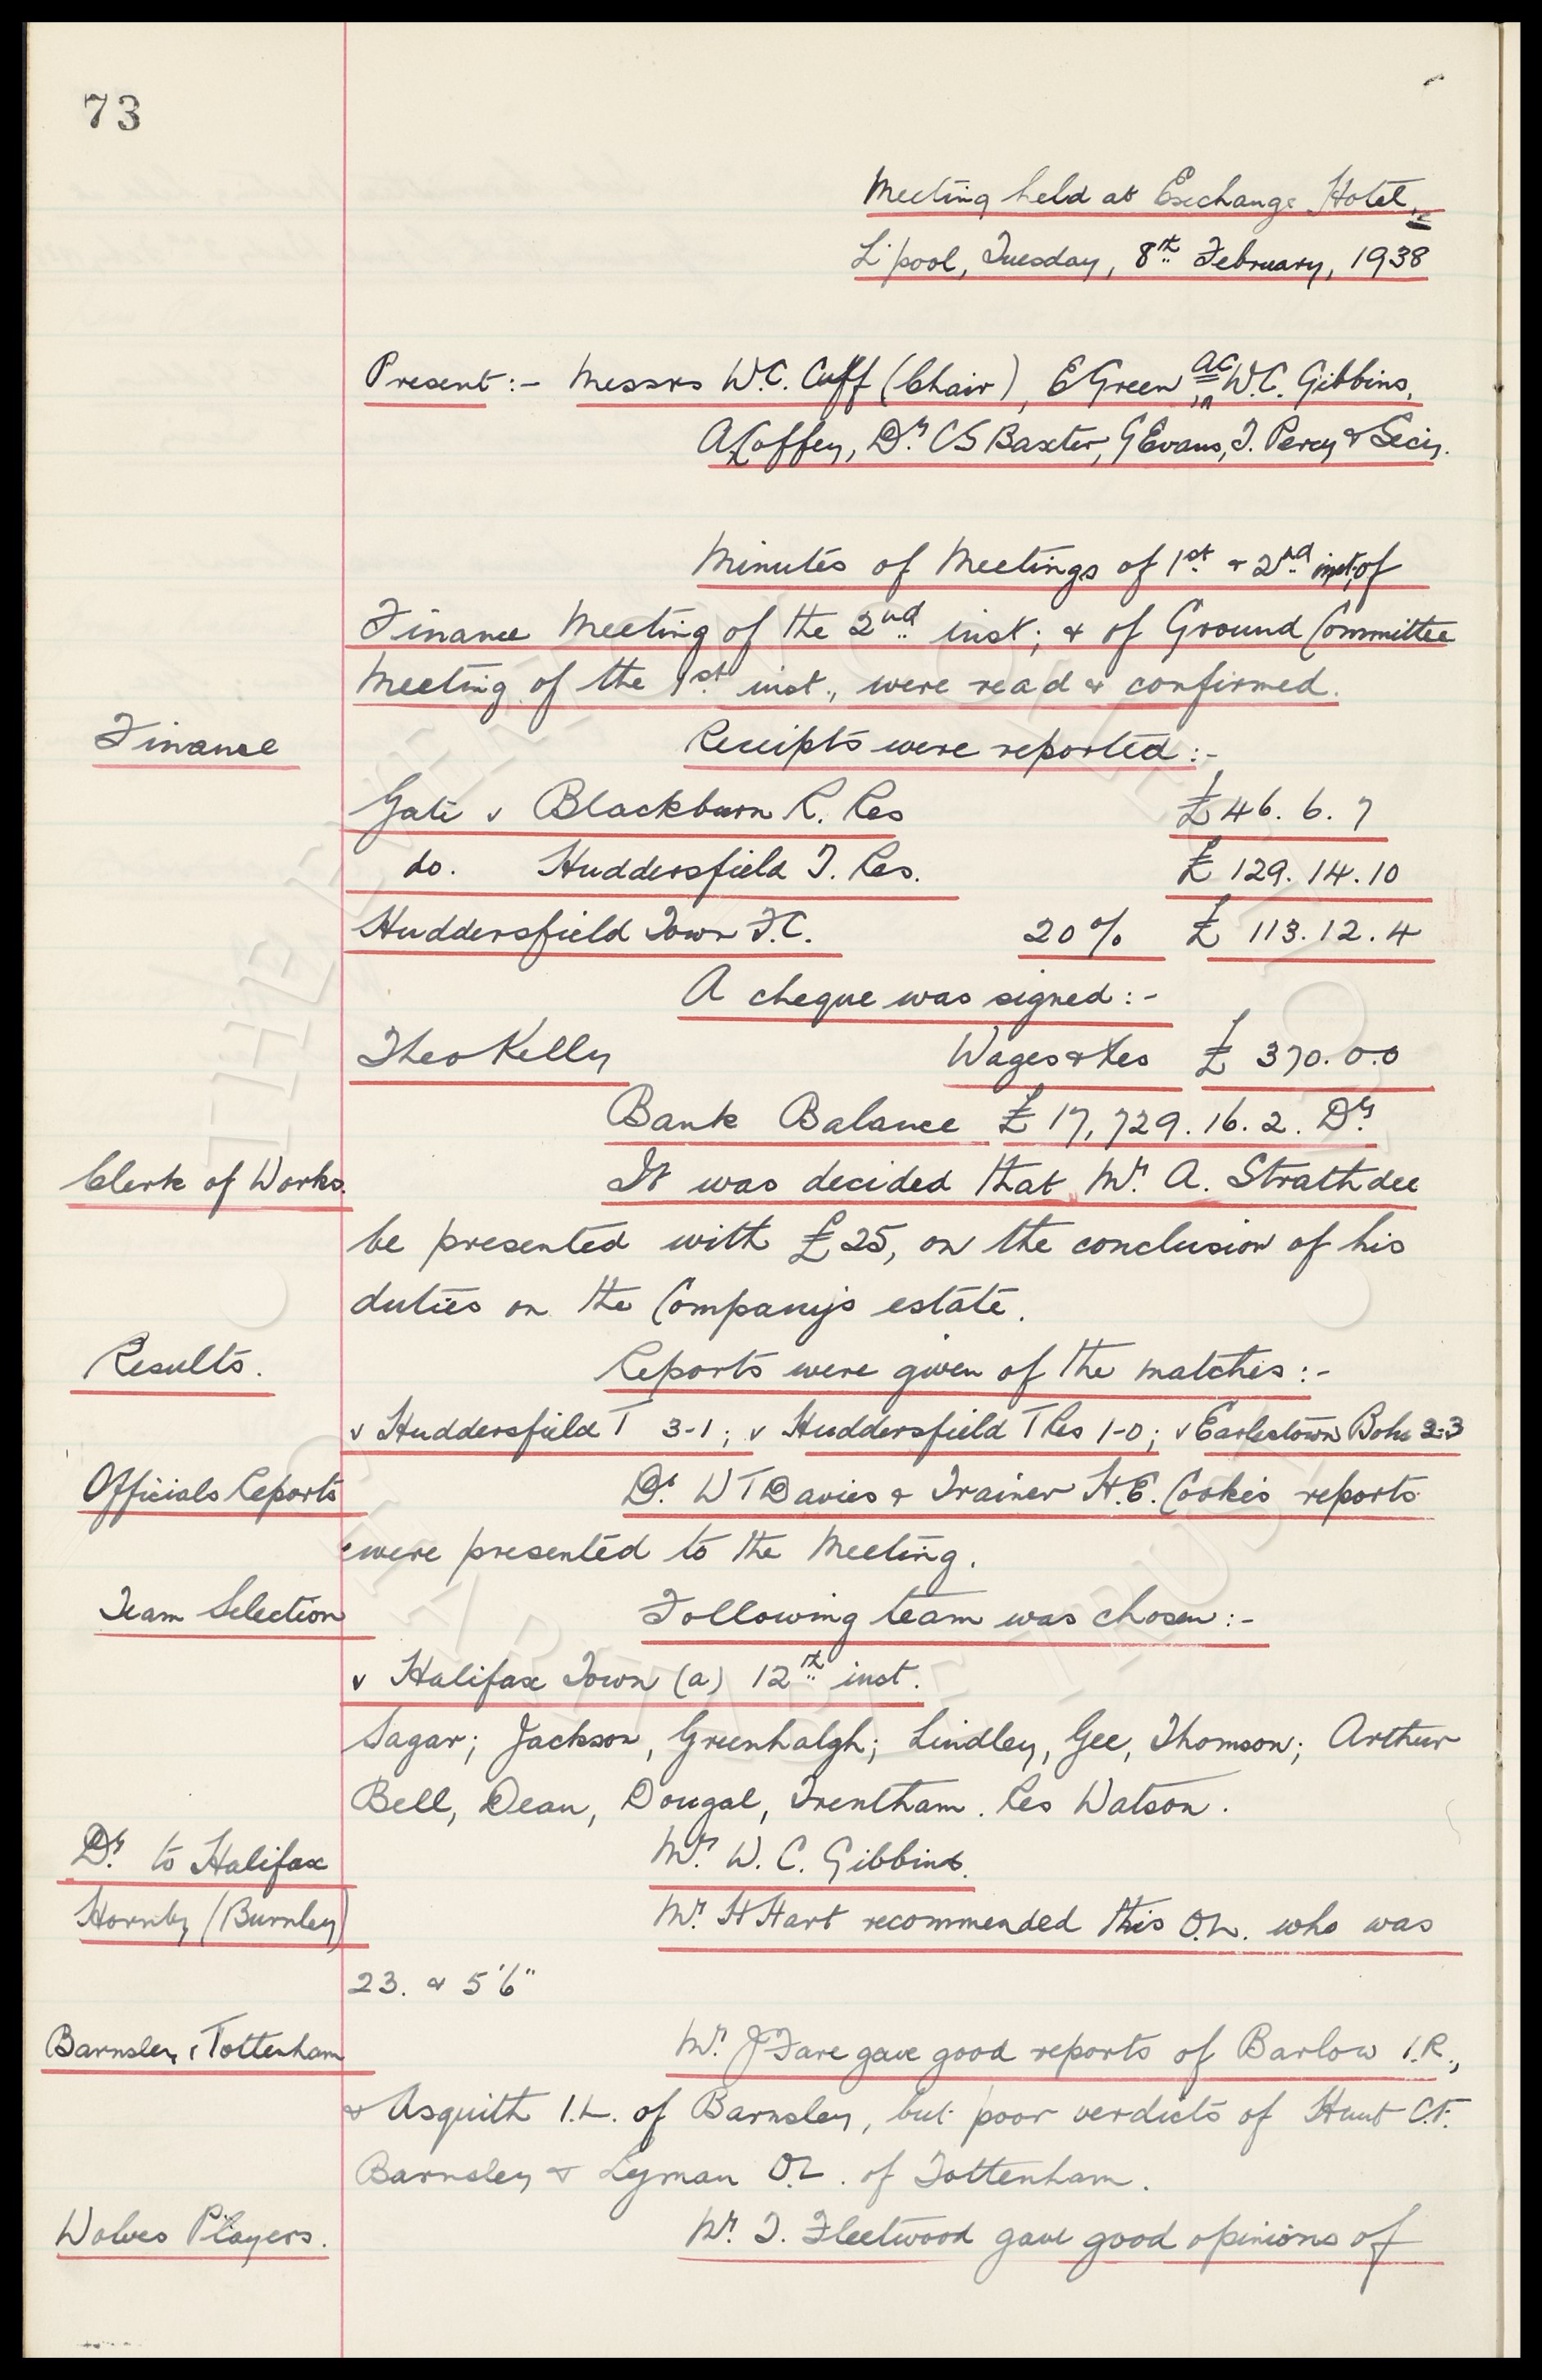 73
Meeting held at Exchange Hotel,
L'pool, Tuesday, 8th February, 1938
Present:- Messrs W.C. Cuff (Chair), E Green, W.C. Gibbins,
A Coffey, Dr. C S Baxter, G Evans, T. Percy & Secy.
Minutes of Meetings of 1st & 2nd inst; of
Finance Meeting of the 2nd inst; & of Ground Committee
Meeting of the 1st inst., were read & confirmed.
Finance Receipts were reported:-
Gate v Blackburn R. Res £46. 6. 7
do. Huddersfield T. Res. £ 129. 14. 10
Huddersfield Town F.C. 20% £ 113. 12. 4
A cheque was signed:-
Theo Kelly Wages & Xes £ 370. 0. 0
Bank Balance £ 17,729. 16. 2. Dr.
Clerk of Works. It was decided that Mr. A. Strathdee
be presented with £25, on the conclusion of his
duties on the Company's estate.
Results. Reports were given of the matches:-
v Huddersfield T 3-1; v Huddersfield T Res 1-0; v Earlestown Bohs 3-3
Officials Reports Dr. W T Davies & Trainer H.E. Cooke's reports
were presented to the Meeting.
Team Selection Following team was chosen:-
v Halifax Town (a) 12th inst.
Sagar; Jackson, Greenhalgh; Lindley, Gee, Thomson; Arthur
Bell, Dean, Dougal, Trentham. Res Watson.
Dr. to Halifax Mr. W. C. Gibbins.
Hornby (Burnley) Mr. H Hart recommended this O.L. who was
23. & 5'6"
Barnsley v Tottenham Mr. J Fare gave good reports of Barlow I.R.,
& Asquith I.L. of Barnsley, but poor verdicts of Hunt C.F.
Barnsley & Lyman O.L. of Tottenham.
Wolves Players. Mr. T. Fleetwood gave good opinions of